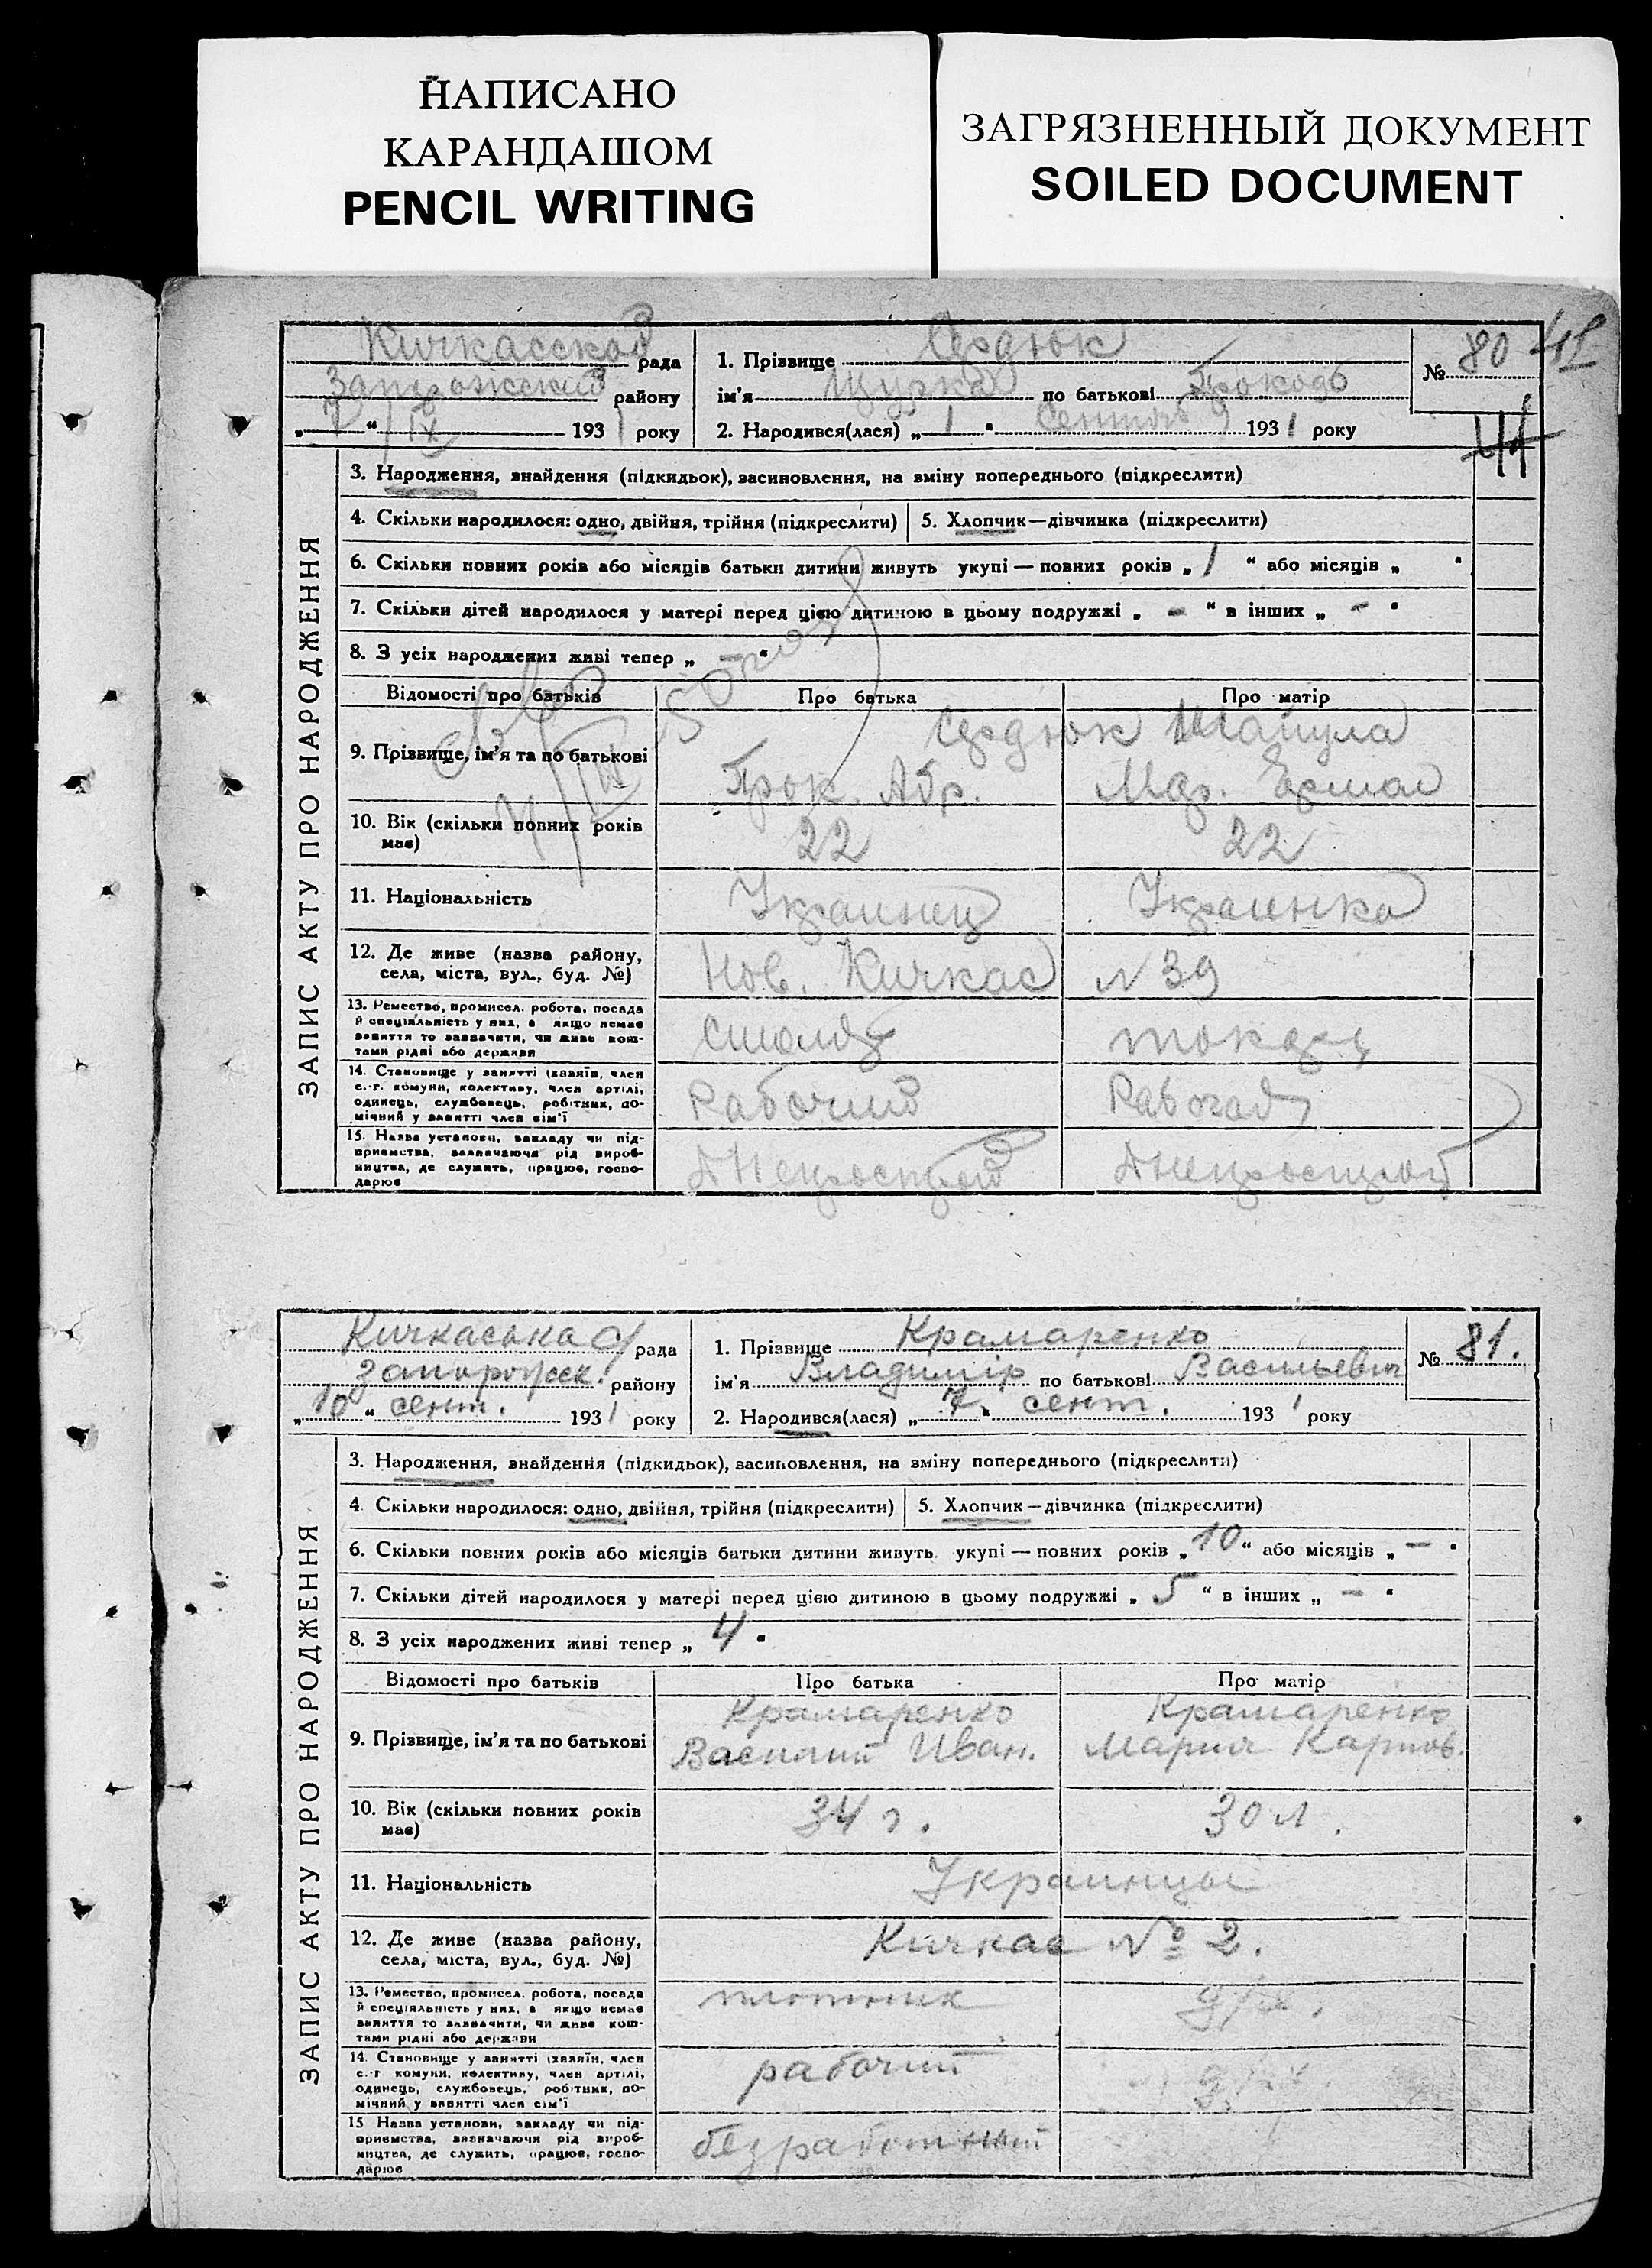 НАПИСАНО
КАРАНДАШОМ
PENCIL WRITING
ЗАГРЯЗНЕННЫЙ ДОКУМЕНТ
SOILED DOCUMENT
Кичкасской рада
Запорожский району
„ 7 “ IX 1931 року
1. Прізвище Сердюк
ім'я по батькові
2. Народився(лася) „ 1 “ Сентяб 1931 року
№ 80
41
ЗАПИС АКТУ ПРО НАРОДЖЕННЯ
3. Народження, знайдення (підкидьок), засиновлення, на зміну попереднього (підкреслити)
4. Скільки народилося: одно, двійня, трійня (підкреслити)
5. Хлопчик—дівчинка (підкреслити)
6. Скільки повних років або місяців батьки дитини живуть укупі — повних років „ 1 “ або місяців „ “
7. Скільки дітей народилося у матері перед цією дитиною в цьому подружжі „ – “ в інших „ – “
8. З усіх народжених живі тепер „ – “
Відомості про батьків Про батька Про матір
9. Прізвище, ім'я та по батькові
Сердюк
Прок. Абр.
10. Вік (скільки повних років має) 22 22
11. Національність Украинец Украенка
12. Де живе (назва району, села, міста, вул., буд. №) Нов. Кичкас N 39
13. Ремество, промисел. робота, посада й спеціяльність у них, а якщо немає заняття то зазначити, чи живе коштами рідні або держави
токарь
14. Становище у занятті (хазяїн, член с.-г. комуни, колективу, член артілі, одинець, службовець, робітник, помічний у занятті член сім'ї
Рабочий
15. Назва установи, закладу чи підприємства, зазначаючи рід виробництва, де служить, працює, господарює
Днепрострой Днепрострой
Кичкаська с/ рада
Запорожск. району
„ 10 “ сент. 1931 року
1. Прізвище Крамаренко
ім'я Владимір по батькові Васильевич
2. Народився(лася) „ 7. “ сент. 1931 року
№ 81.
ЗАПИС АКТУ ПРО НАРОДЖЕННЯ
3. Народження, знайдення (підкидьок), засиновлення, на зміну попереднього (підкреслити)
4. Скільки народилося: одно, двійня, трійня (підкреслити)
5. Хлопчик—дівчинка (підкреслити)
6. Скільки повних років або місяців батьки дитини живуть укупі — повних років „ 10 “ або місяців „ – “
7. Скільки дітей народилося у матері перед цією дитиною в цьому подружжі „ 5 “ в інших „ – “
8. З усіх народжених живі тепер „ 4 “
Відомості про батьків Про батька Про матір
9. Прізвище, ім'я та по батькові
Крамаренко Крамаренко
Василий Иван. Мария Карпов.
10. Вік (скільки повних років має) 34 г. 30 л.
11. Національність Украинцы
12. Де живе (назва району, села, міста, вул., буд. №) Кичкас № 2.
13. Ремество, промисел. робота, посада й спеціяльність у них, а якщо немає заняття то зазначити, чи живе коштами рідні або держави
плотник
14. Становище у занятті (хазяїн, член с.-г. комуни, колективу, член артілі, одинець, службовець, робітник, помічний у занятті член сім'ї
рабочий
15. Назва установи, закладу чи підприємства, зазначаючи рід виробництва, де служить, працює, господарює
безработный